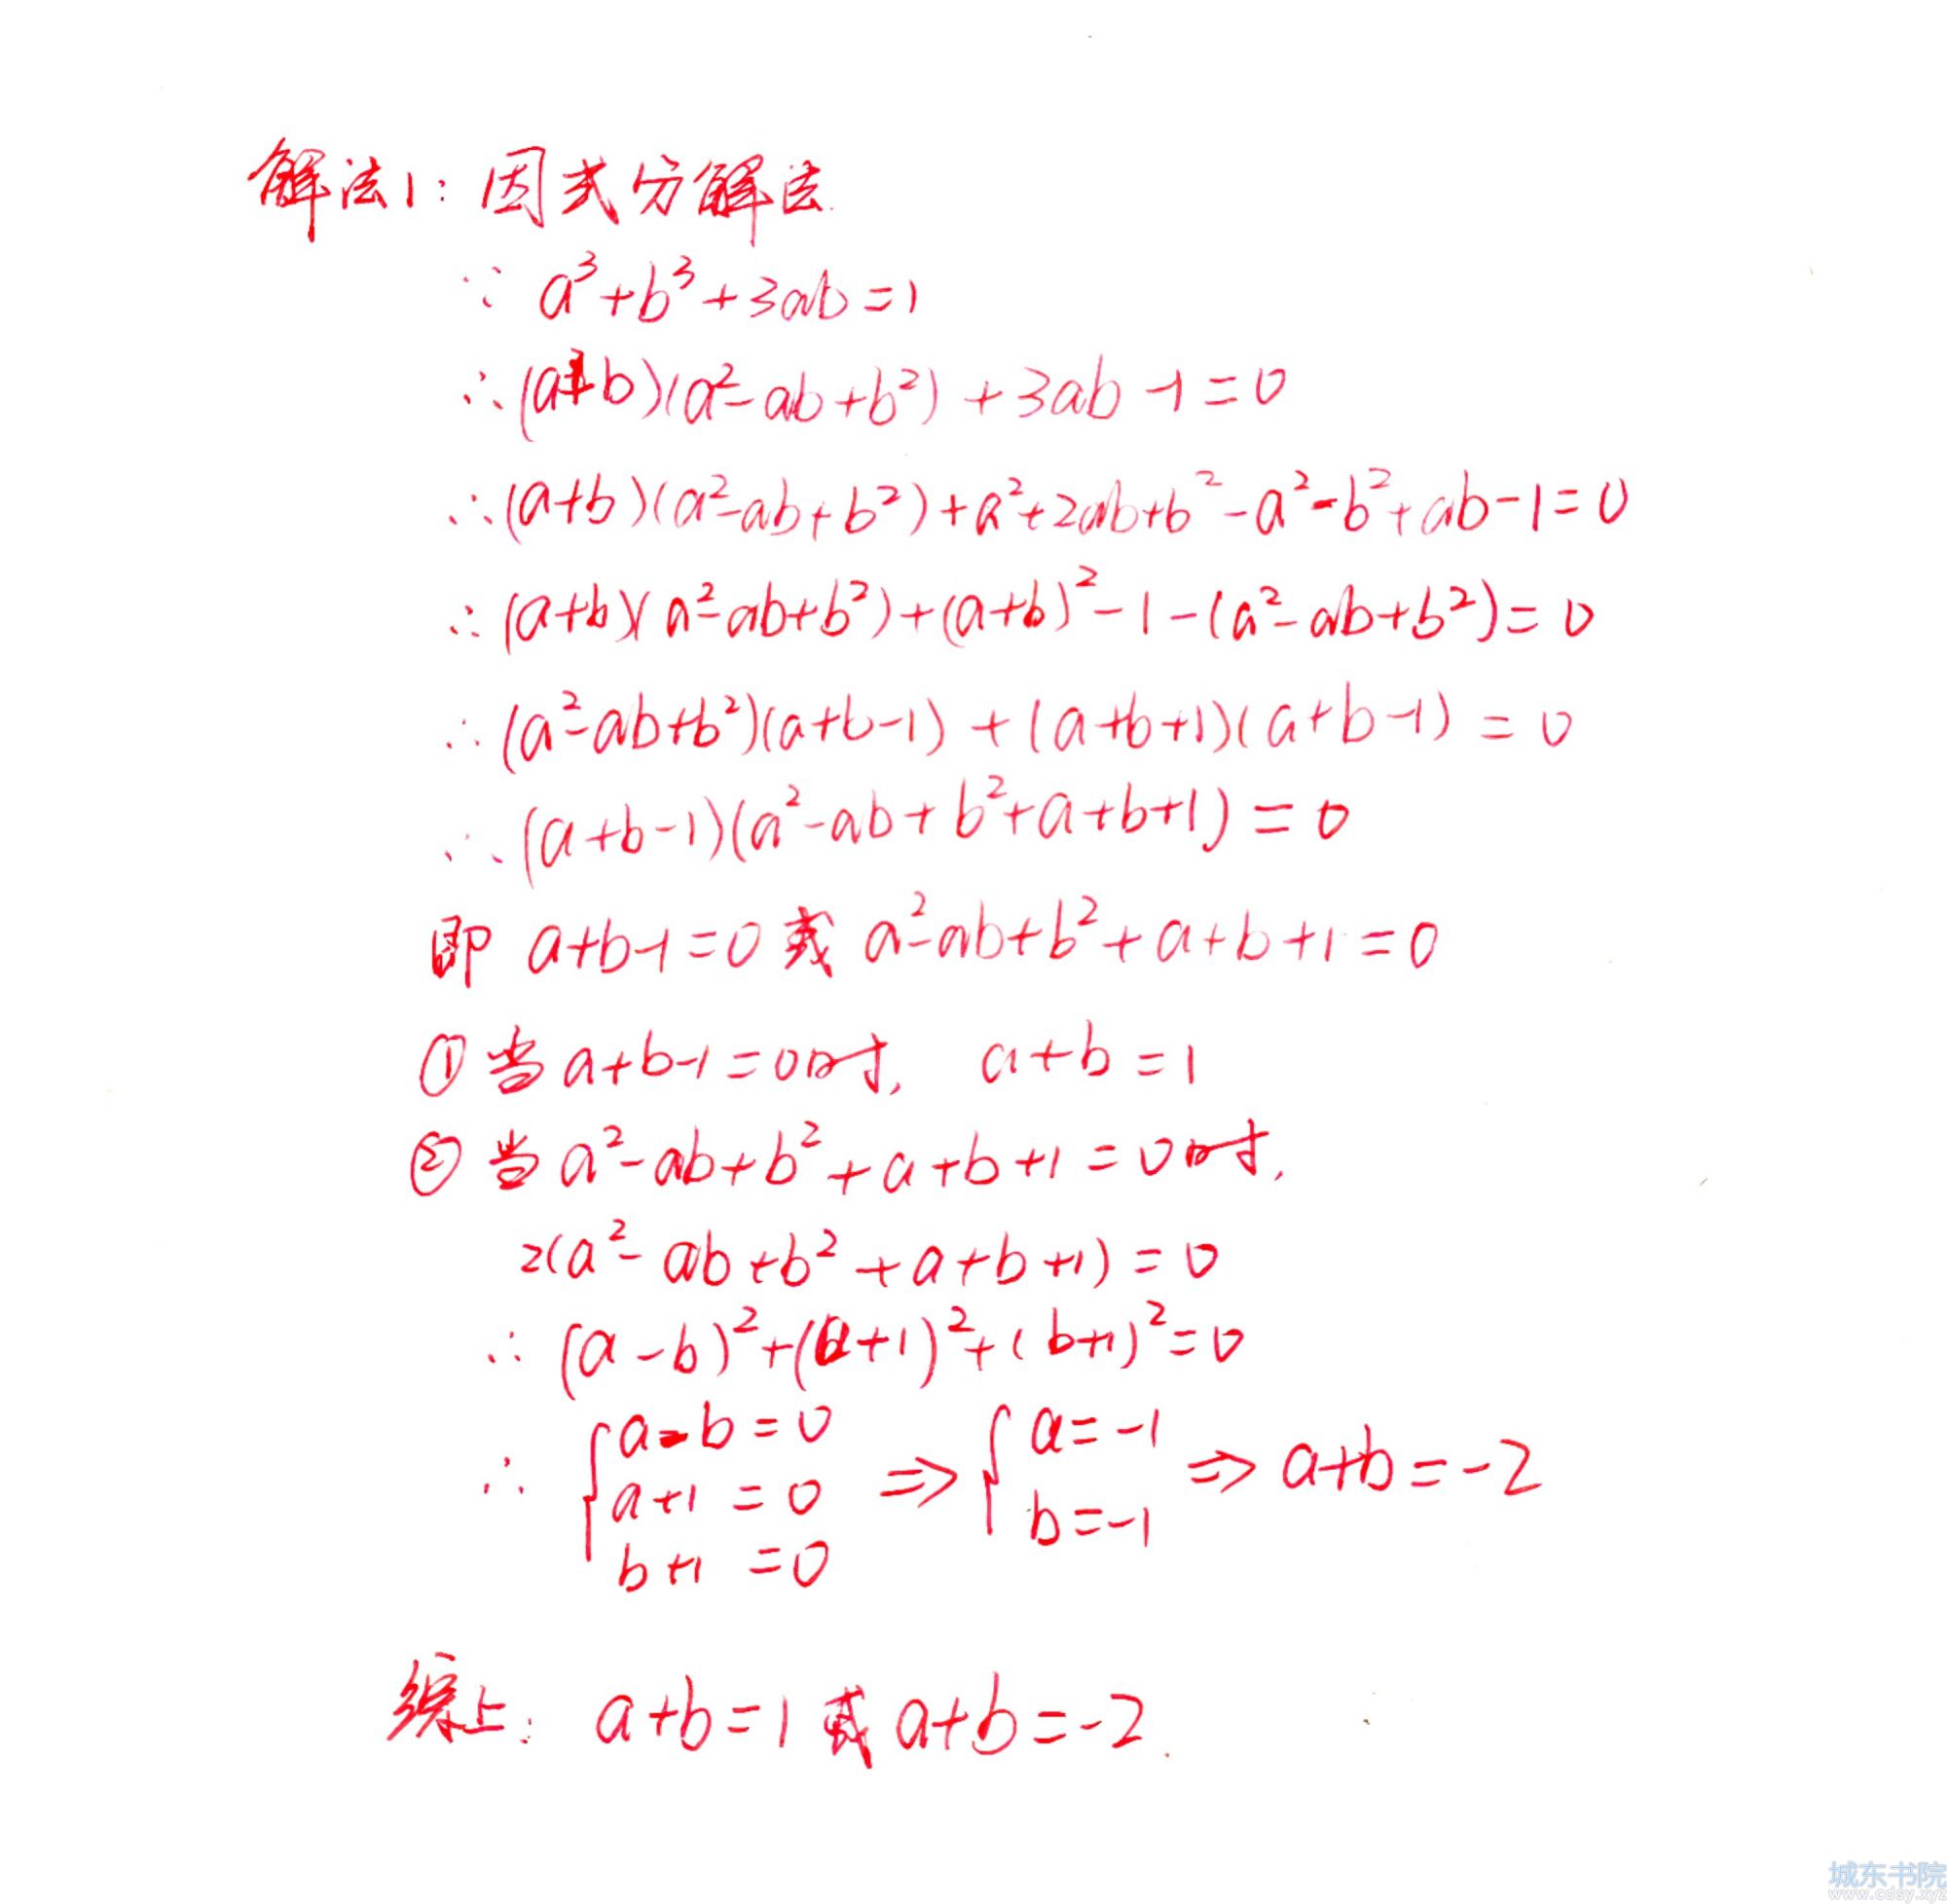 解法1: 因式分解法.
∵ a³+b³+3ab=1
∴(a+b)(a²-ab+b²)+3ab-1=0
∴(a+b)(a²-ab+b²)+a²+2ab+b²-a²-b²+ab-1=0
∴(a+b)(a²-ab+b²)+(a+b)²-1-(a²-ab+b²)=0
∴(a²-ab+b²)(a+b-1)+(a+b+1)(a+b-1)=0
∴(a+b-1)(a²-ab+b²+a+b+1)=0
即 a+b-1=0 或 a²-ab+b²+a+b+1=0
① 当 a+b-1=0时, a+b=1
② 当 a²-ab+b²+a+b+1=0时,
2(a²-ab+b²+a+b+1)=0
∴ (a-b)²+(a+1)²+(b+1)²=0
∴ { a-b=0 ⇒ { a=-1 ⇒ a+b=-2
a+1=0
b=-1
b+1=0
综上: a+b=1 或 a+b=-2.
城东书院
www.cdsy.xyz